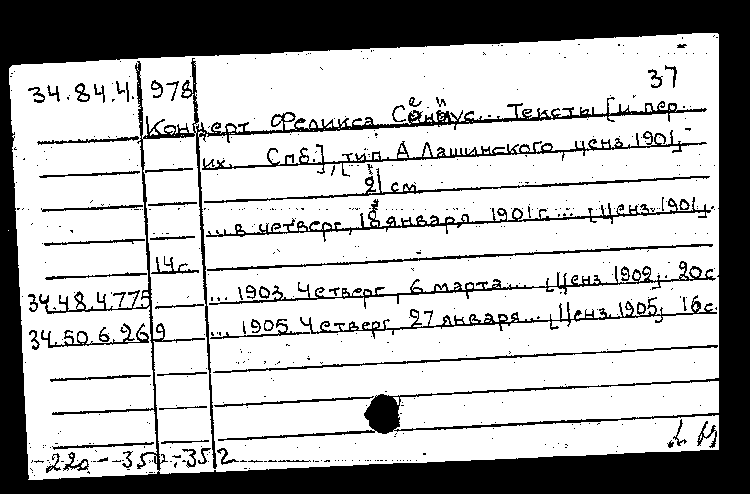 37
34.84.4. 978
Концерт Феликса Сениус... Тексты [и пер.
их. Спб.], тип. А Лашинского, ценз. 1901,-
21 см
... в четверг, 18 января 1901 г. ... [Ценз. 1901,.
14 с.
34.48.4.775 ... 1903. Четверг, 6 марта... [Ценз 1902, 20 с
34.50.6.269 ... 1905. Четверг, 27 января... [Ценз. 1905, 16 с.
220 - 350 - 352